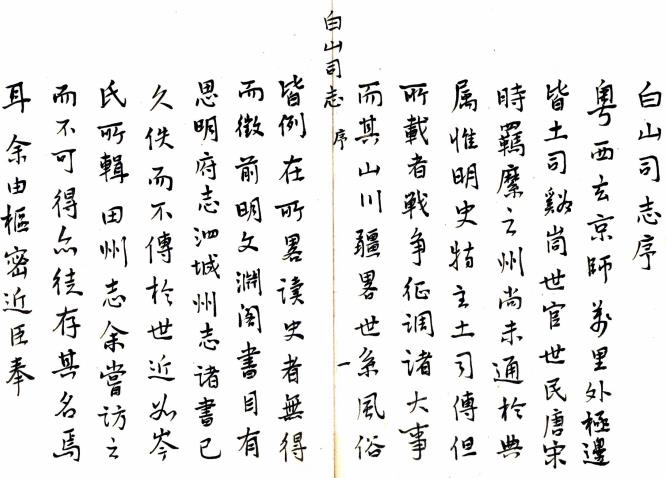 白山司志序
粵西去京師萬里外極邊
皆土司谿峝世官世民唐宋
時羈縻之州尚未通於典
属惟明史特立土司傳但
所載者戰争征調諸大事
而其山川疆畧世系風俗
白山司志 序 一
皆例在所畧讀史者無得
而徵前明文淵阁書目有
思明府志泗城州志诸書已
久佚而不傳於世近如岑
氏所輯田州志余嘗访之
而不可得亦徒存其名焉
耳余由樞密近臣奉